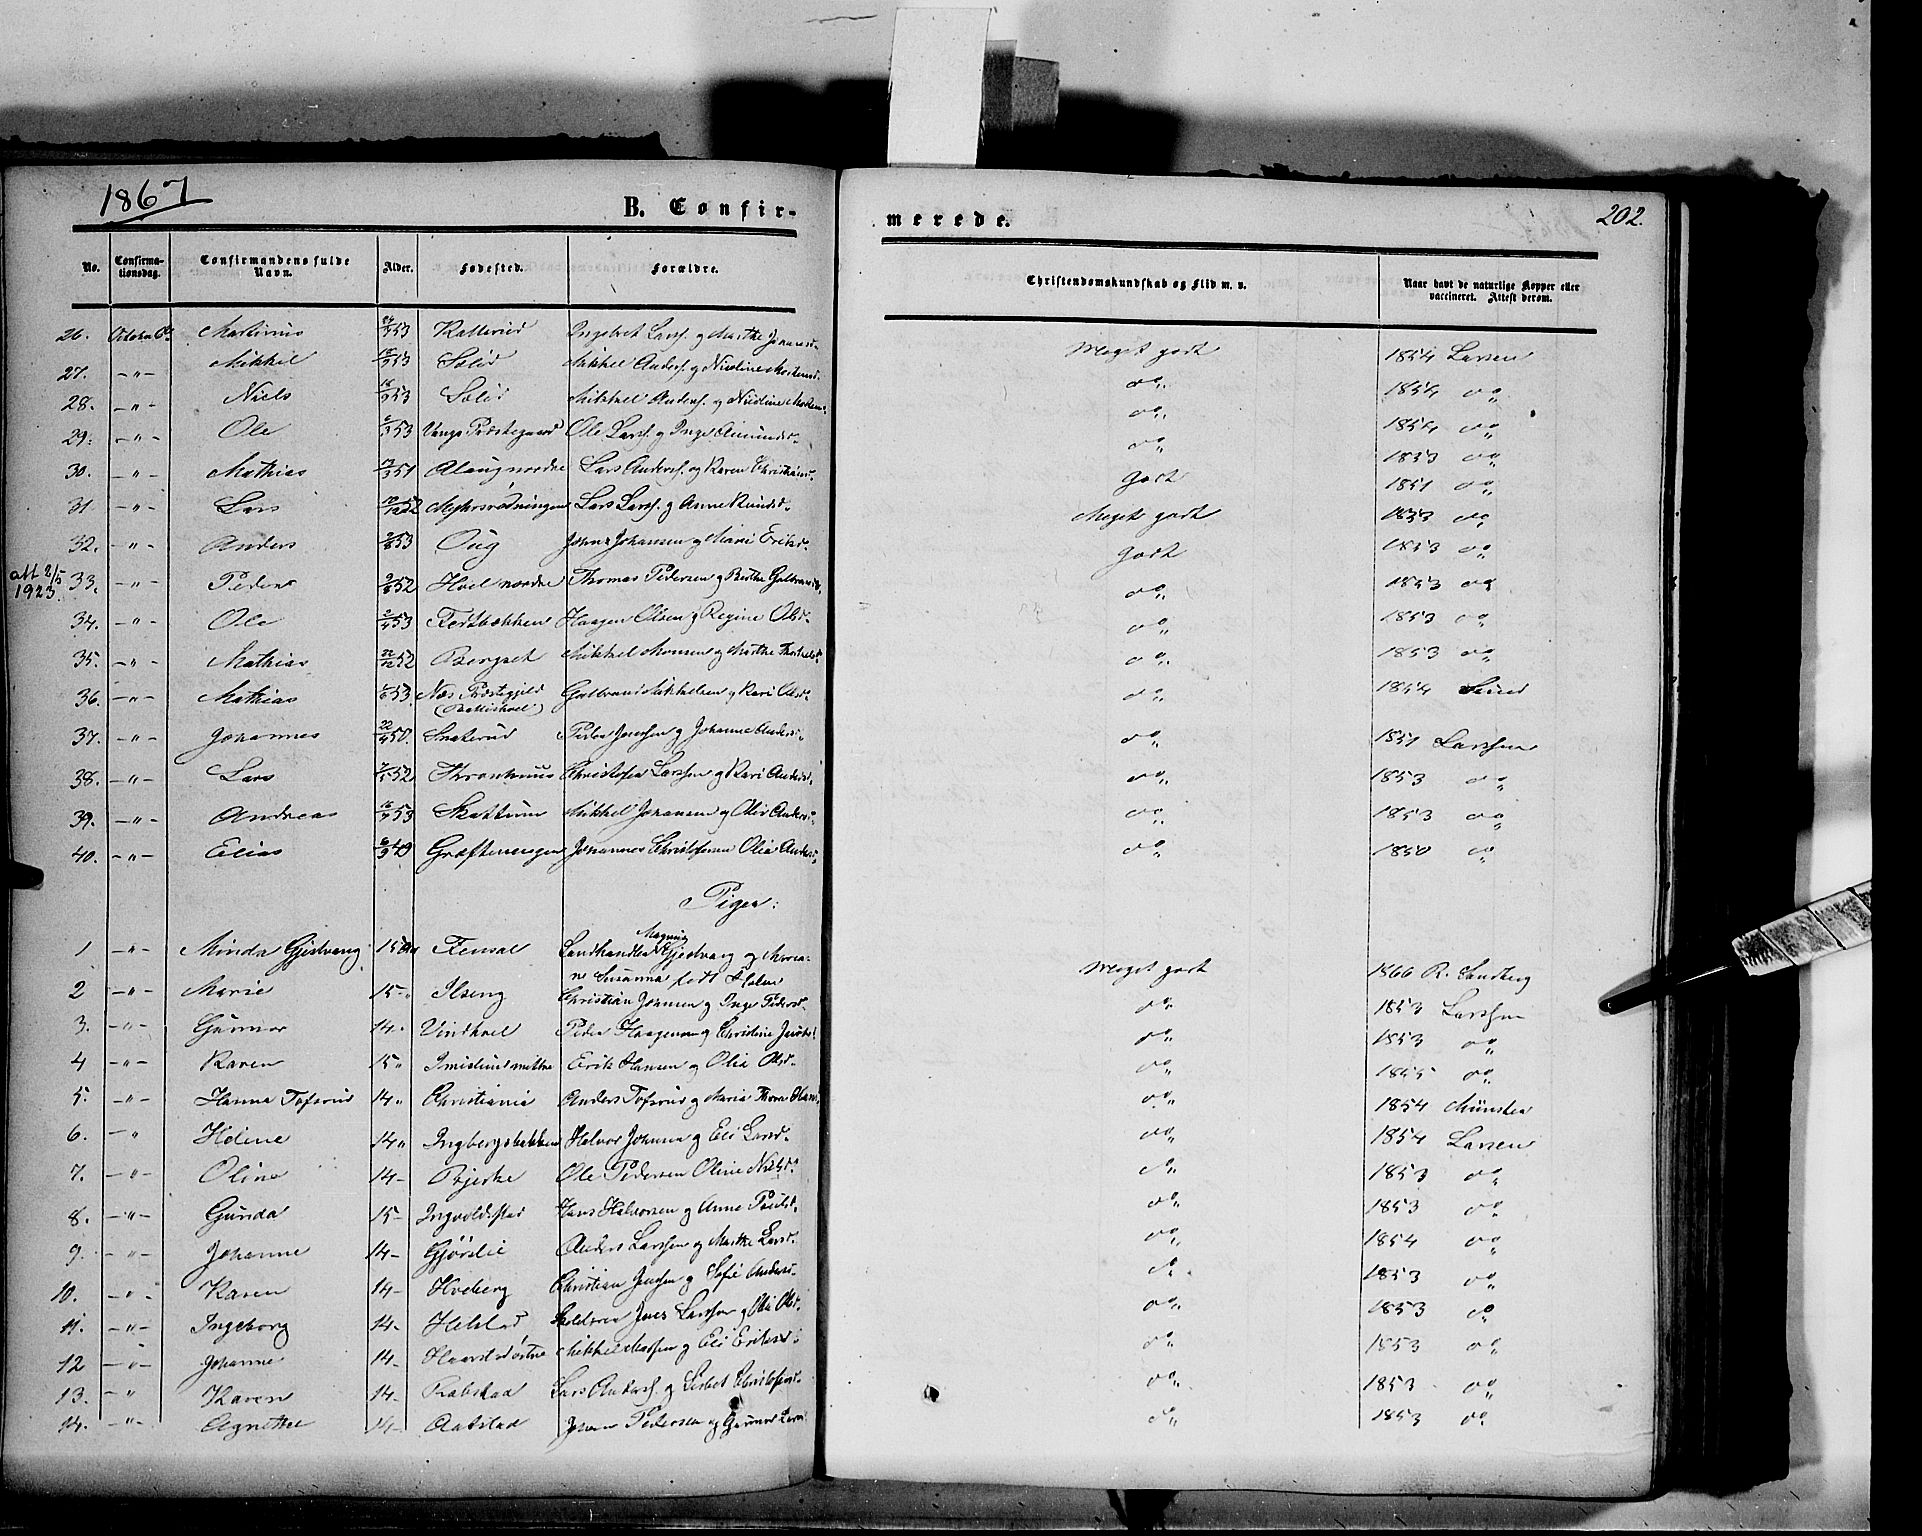 1867
B. Confir-
merede.
202.
No.
Confirma-
tionsdag.
Confirmandens fulde
Navn.
Alder.
Fødested.
Forældre.
Christendomskundskab og Flid m. v.
Naar havt de naturlige Kopper eller
vaccineret. Attest derom.
26. Martinus 24/7 53 Ingebret Larss. og Marthe Johannesd. Meget godt 1854 Larsen
27. -"- Mikkel 18/9 53 Solid Mikkel Anders. og Nicoline Mortensd. do 1854 do
28. -"- Niels 18/9 53 Solid Mikkel Anders. og Nicoline Mortensd. do 1854 do
29. -"- Ole 6/3 53 Vangs Præstegaard Ole Larss. og Inge Amundsd. do 1853 do
30. -"- Mathias 51 Alaug nordre Lars Anderss. og Karen Christiansd. Godt 1851 do
31 -"- Lars 52 Lars Larss. og Anne Meget godt 1853 do
32. -"- Anders 2/8 53 Oug Johan Johansen og Mari Eriksd. Godt 1853 do
att 2/5
1923.
33. -"- Peder 9/8 52 Hvel nordre Thomas Pedersen og Berthe Gulbrandsd. do 1853 do
34. -"- Ole 2/4 53 Haagen Olsen og Regine Olsd. do 1853 do
35. -"- Mathias 22/12 52 Bergset Mikkel Monsen og Marthe do 1853 do
36. -"- Mathias 53. Næs Præstgjeld Gulbrand Mikkelsen og Kari Olsd. do 1854
37. -"- Johannes 22/4 50. Snaterud Peder Jensen og Johanne Andersd. do 1851 Larssen
38. -"- Lars 52 Christofer Larssen og Kari Andersd. do 1853 do
39. -"- Andreas 16/7 53 Skattum Mikkel Johansen og Olia Andersd. do 1853 do
40. -"- Elias 6/3 49 Græftemengen Johannes Christofersen Olia Andersd. do 1850 do
Piger:
1 -"- Minda Gjestvang 15 Aar Fensal Landhandler Magnus Gjestvang og Maria-
ne Susanna født Holm Meget godt 1866 R. Sandberg
2 -"- Marie 15 - Ilseng Christian Johnsen og Inge Pedersd. do 1853 Larssen
3. -"- Gunnor 14. Vindhvel Peder Haagensen og Christine do 1853 do
4 -"- Karen 15 " Erik Hansen og Olia Olsd. do 1855 do
5. -"- Hanna Tofsrud 14. Christiania Anders Tofsrud og Maria Thora do 1854 Münster
6. -"- Heline 14 " Ingbergsbakken Halvor Johnsen og Eli Larsd. do 1854 Larsen
7. -"- Oline 14 - Bjerke Ole Pedersen Oline Nielsd. do 1853 do
8. -"- Gunda 15 - Ingvoldstad Hans Halvorsen og Anne Paulsd. do 1853 do
9. -"- Johanne 14 - Gjørslie Anders Larssen og Marthe Larsd. do 1854 do
10. -"- Karen 14 - Hveberg Christian Jensen og Sofie Andersd. do 1853 do
11. -"- Ingeborg 14 - Helstad Jens Larssen og Olia Olsd. do 1853 do
12 -"- Johanne 14. Mikkel og Eli Eriksd. do 1853 do
13. -"- Karen 14 - Rabstad Lars Anderss. og Lisbet Christofersd. do 1853 do
14. -"- Agnethe 14 - Aabstad Johan Pedersen og Gunnor Larsd. do 1853 do